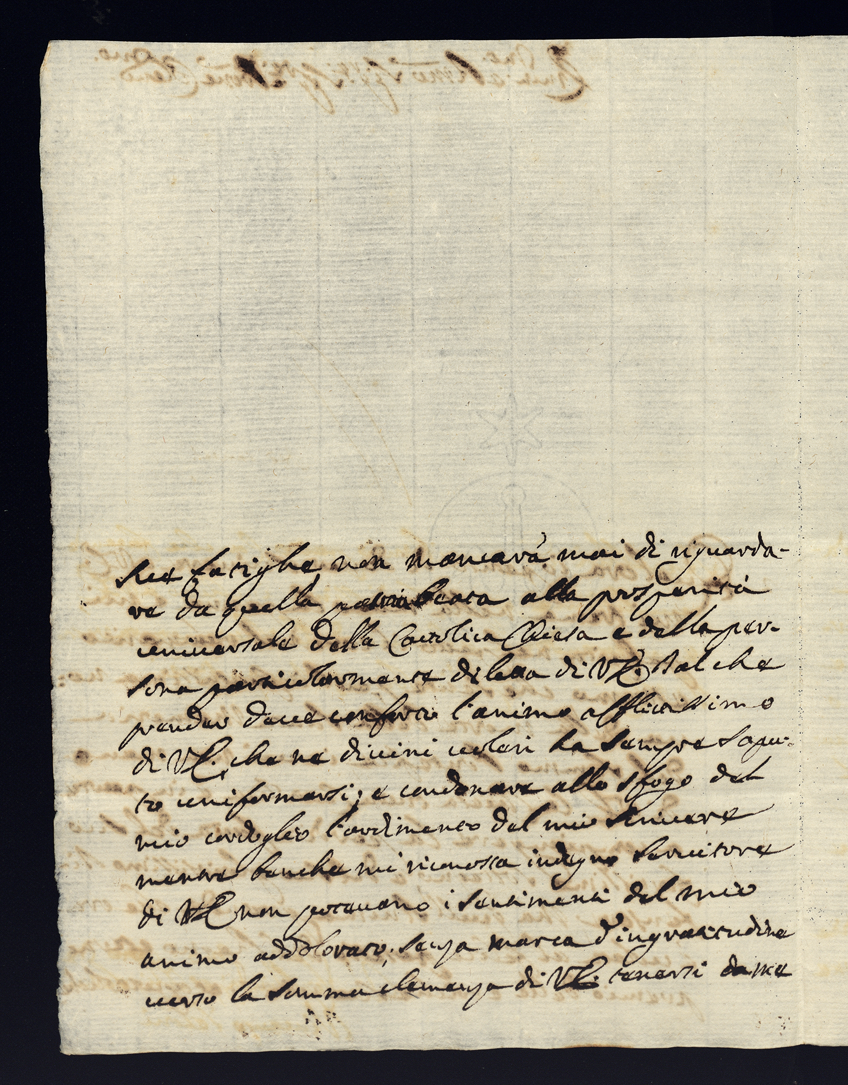 sue fatighe, non mancarà mai di riguarda-
re da quella patria beata alla prosperità
universale della Cattolica Chiesa e della per-
sona particolarmente diletta di VE. Talche
prender deve conforto l'animo afflitissimo
di VE, che ne divini voleri ha sempre sapu-
to uniformarsi; e condonare allo sfogo del
mio cordoglio l'ardimento del mio scrivere
mentre benche mi riconosca indegno servitore
di VE non potevano i sentimenti del mio
animo addolorato, senza marca d'ingratitudine
verso la somma clemenza di VE. tenersi da me